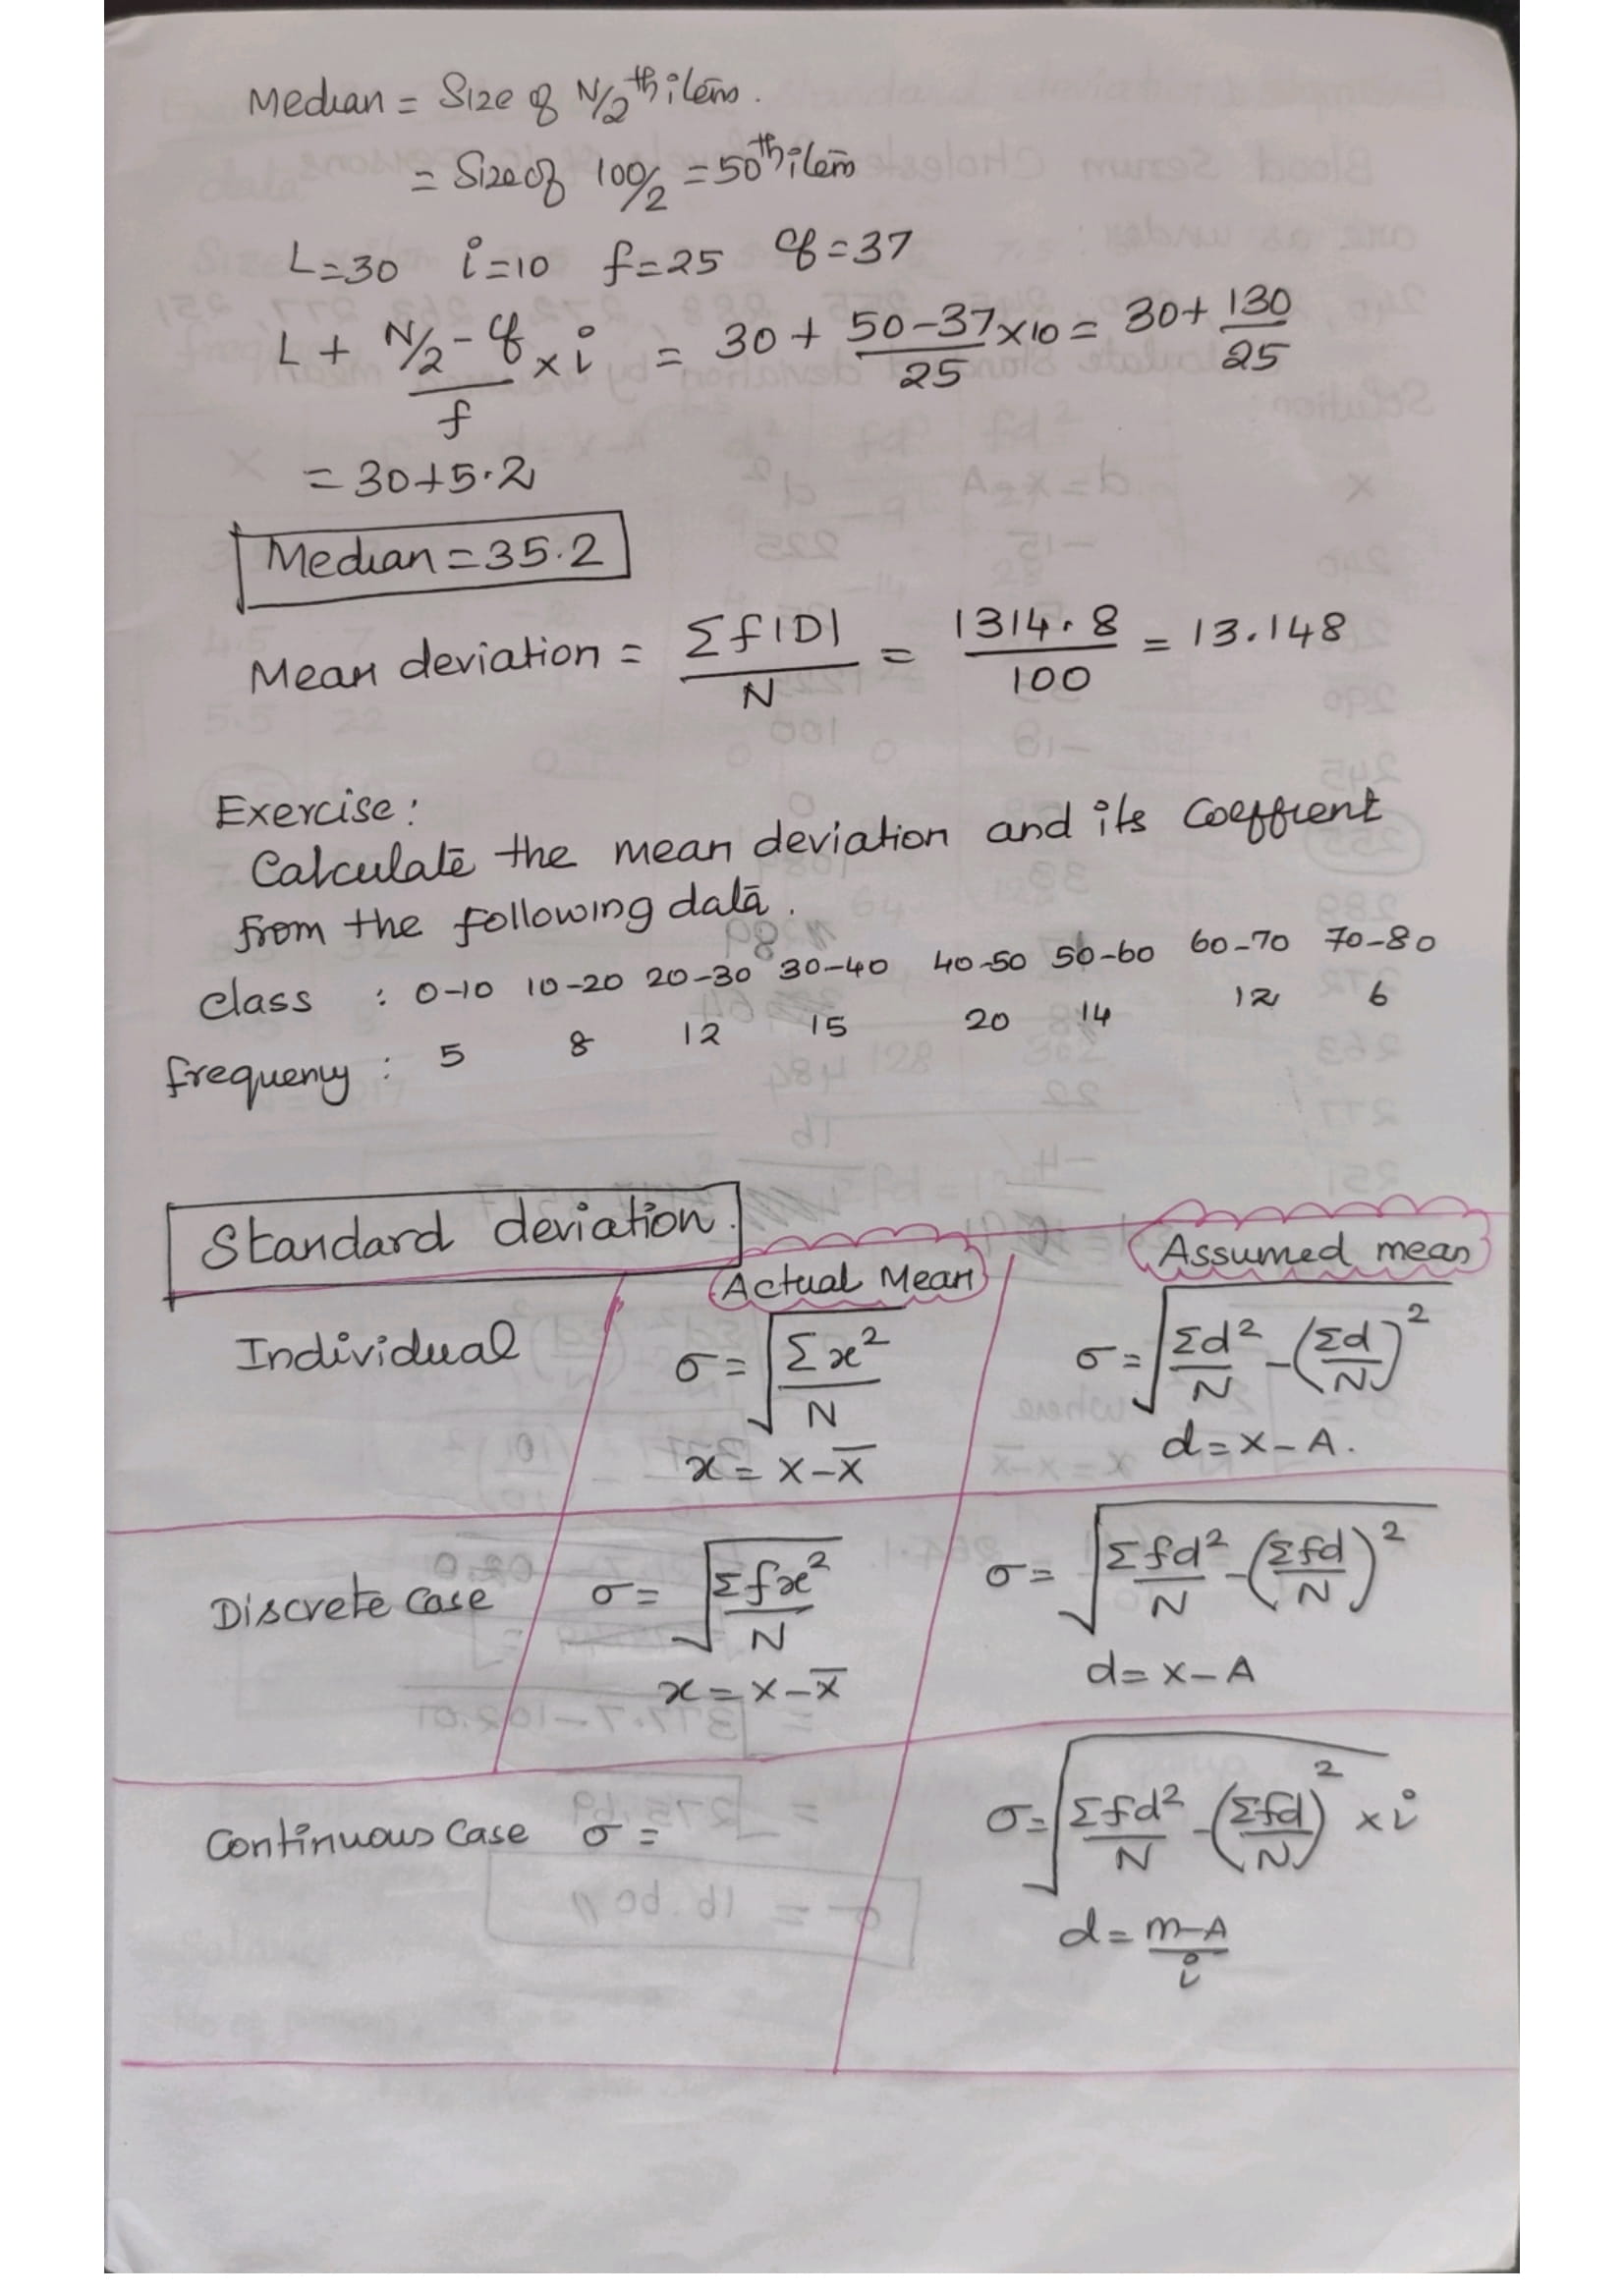 Median = Size of N/2 th item.
= Size of 100/2 = 50th item
L=30 i=10 f=25 cf=37
L + N/2 - cf / f × i = 30 + 50-37/25 ×10 = 30+ 130/25
= 30+5.2
Median = 35.2
Mean deviation = Σf|D| / N = 1314.8 / 100 = 13.148
Exercise:
Calculate the mean deviation and its coeffient
from the following data.
class : 0-10 10-20 20-30 30-40 40-50 50-60 60-70 70-80
frequency : 5 8 12 15 20 14 12 6
Standard deviation.
Actual Mean Assumed mean
Individual σ = √(Σx²/N) σ = √(Σd²/N - (Σd/N)²)
x = X-X̅ d = X-A.
Discrete case σ = √(Σfx²/N) σ = √(Σfd²/N - (Σfd/N)²)
x = X-X̅ d = X-A
Continuous case σ = σ = √(Σfd²/N - (Σfd/N)²) × i
d = m-A / i